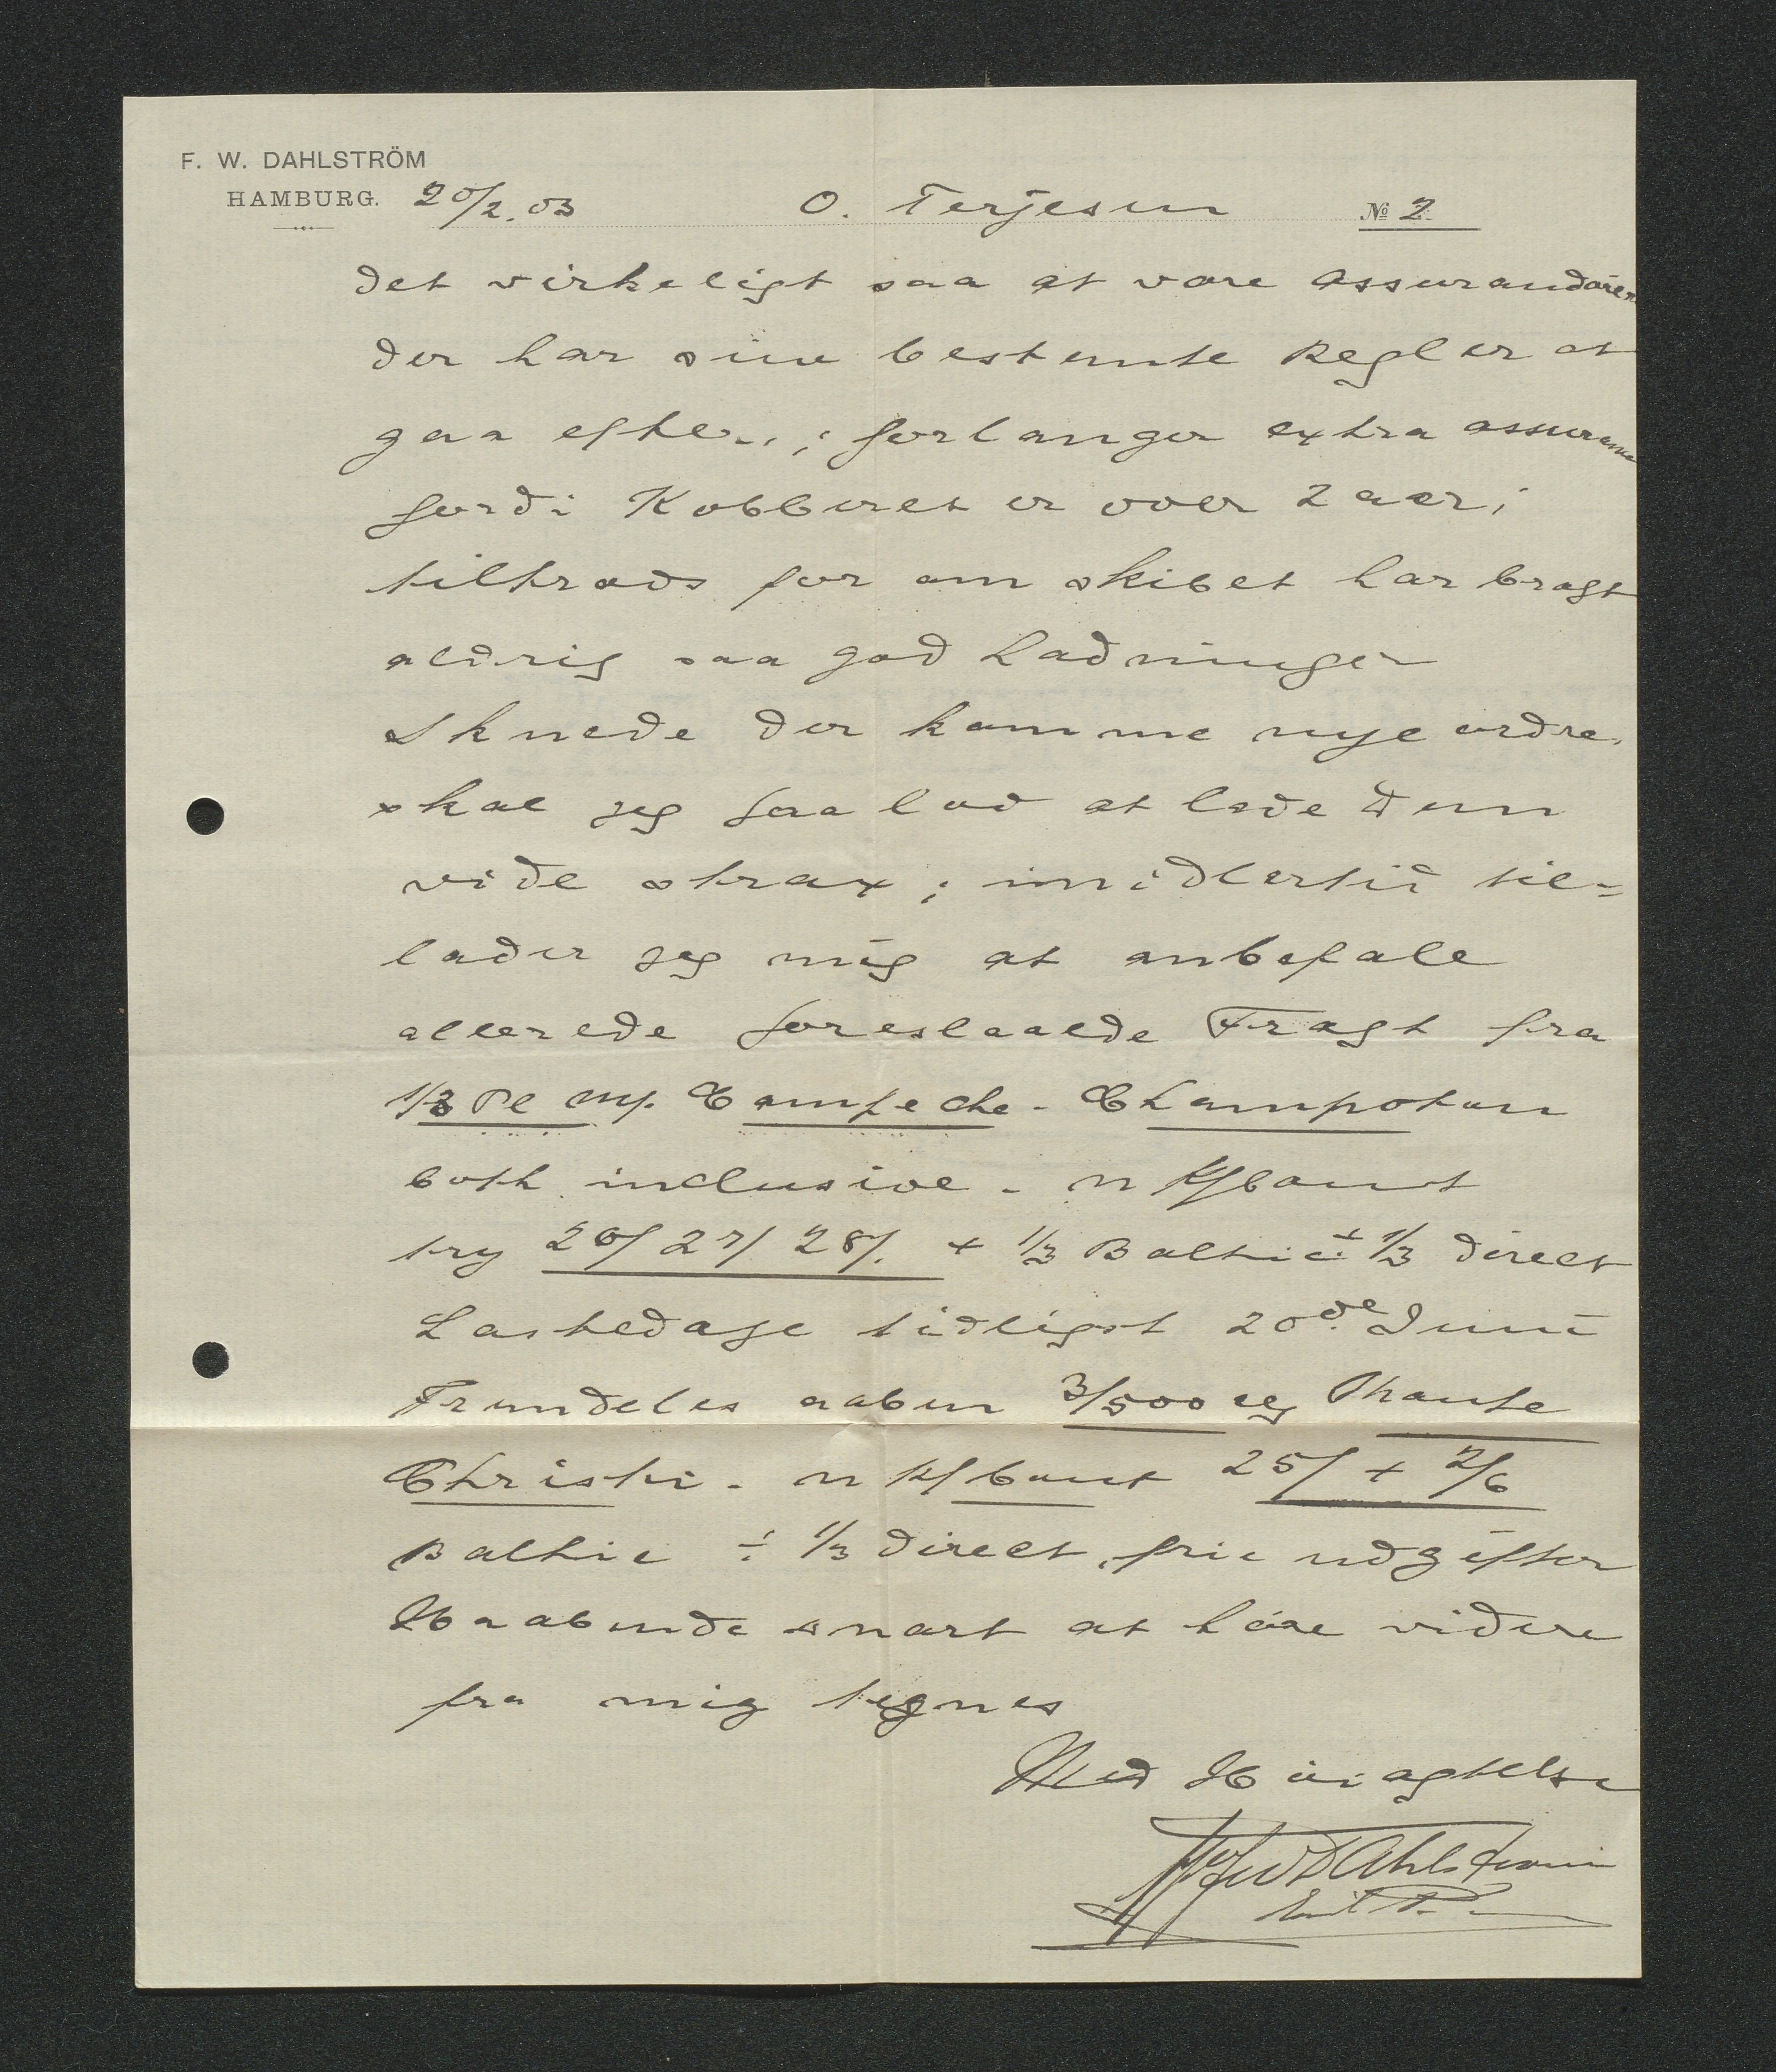 F. W. DAHLSTRÖM
HAMBURG. 20/2.03 O. Terjesen № 2
det virkeligt saa at vore Assurandører
der har sine bestemte Regler at
gaa efter, forlanger extra assurance
fordi Kobberet er over 2 aar,
tiltrods for om skibet har bragt
aldrig saa god Ladninger
Skuede der komme nye ordre
skal jeg faa lov at lade dem
vide strax; imidlertid til=
lader jeg mig at anbefale
allerede foreslaaede Fragt fra
Campeche - Champoton
both inclusive - n Kfbaut
try 26/ 27/ 28/. + 1/3 Baltic ÷ 1/3 direct
Lastedage tidligst 20de Juni
Fremdeles aaben 3/500 reg
Christi - n Kfbaut 25/ + 2/6
Baltic ÷ 1/3 direct, frie udgifter
Haabende snart at høre videre
fra mig tegnes
Med Høiagtelse
FW Dahlström